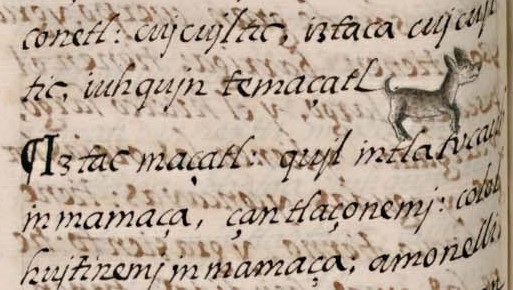 conetl: cujcujltic, iztaca cujcujl
tic, iuhqujn temaçatl
¶Iztac maçatl: qujl intlatvcauh
inmamaça, çan tlaçonemj: colol
hujtinemj inmamaça; amonelli